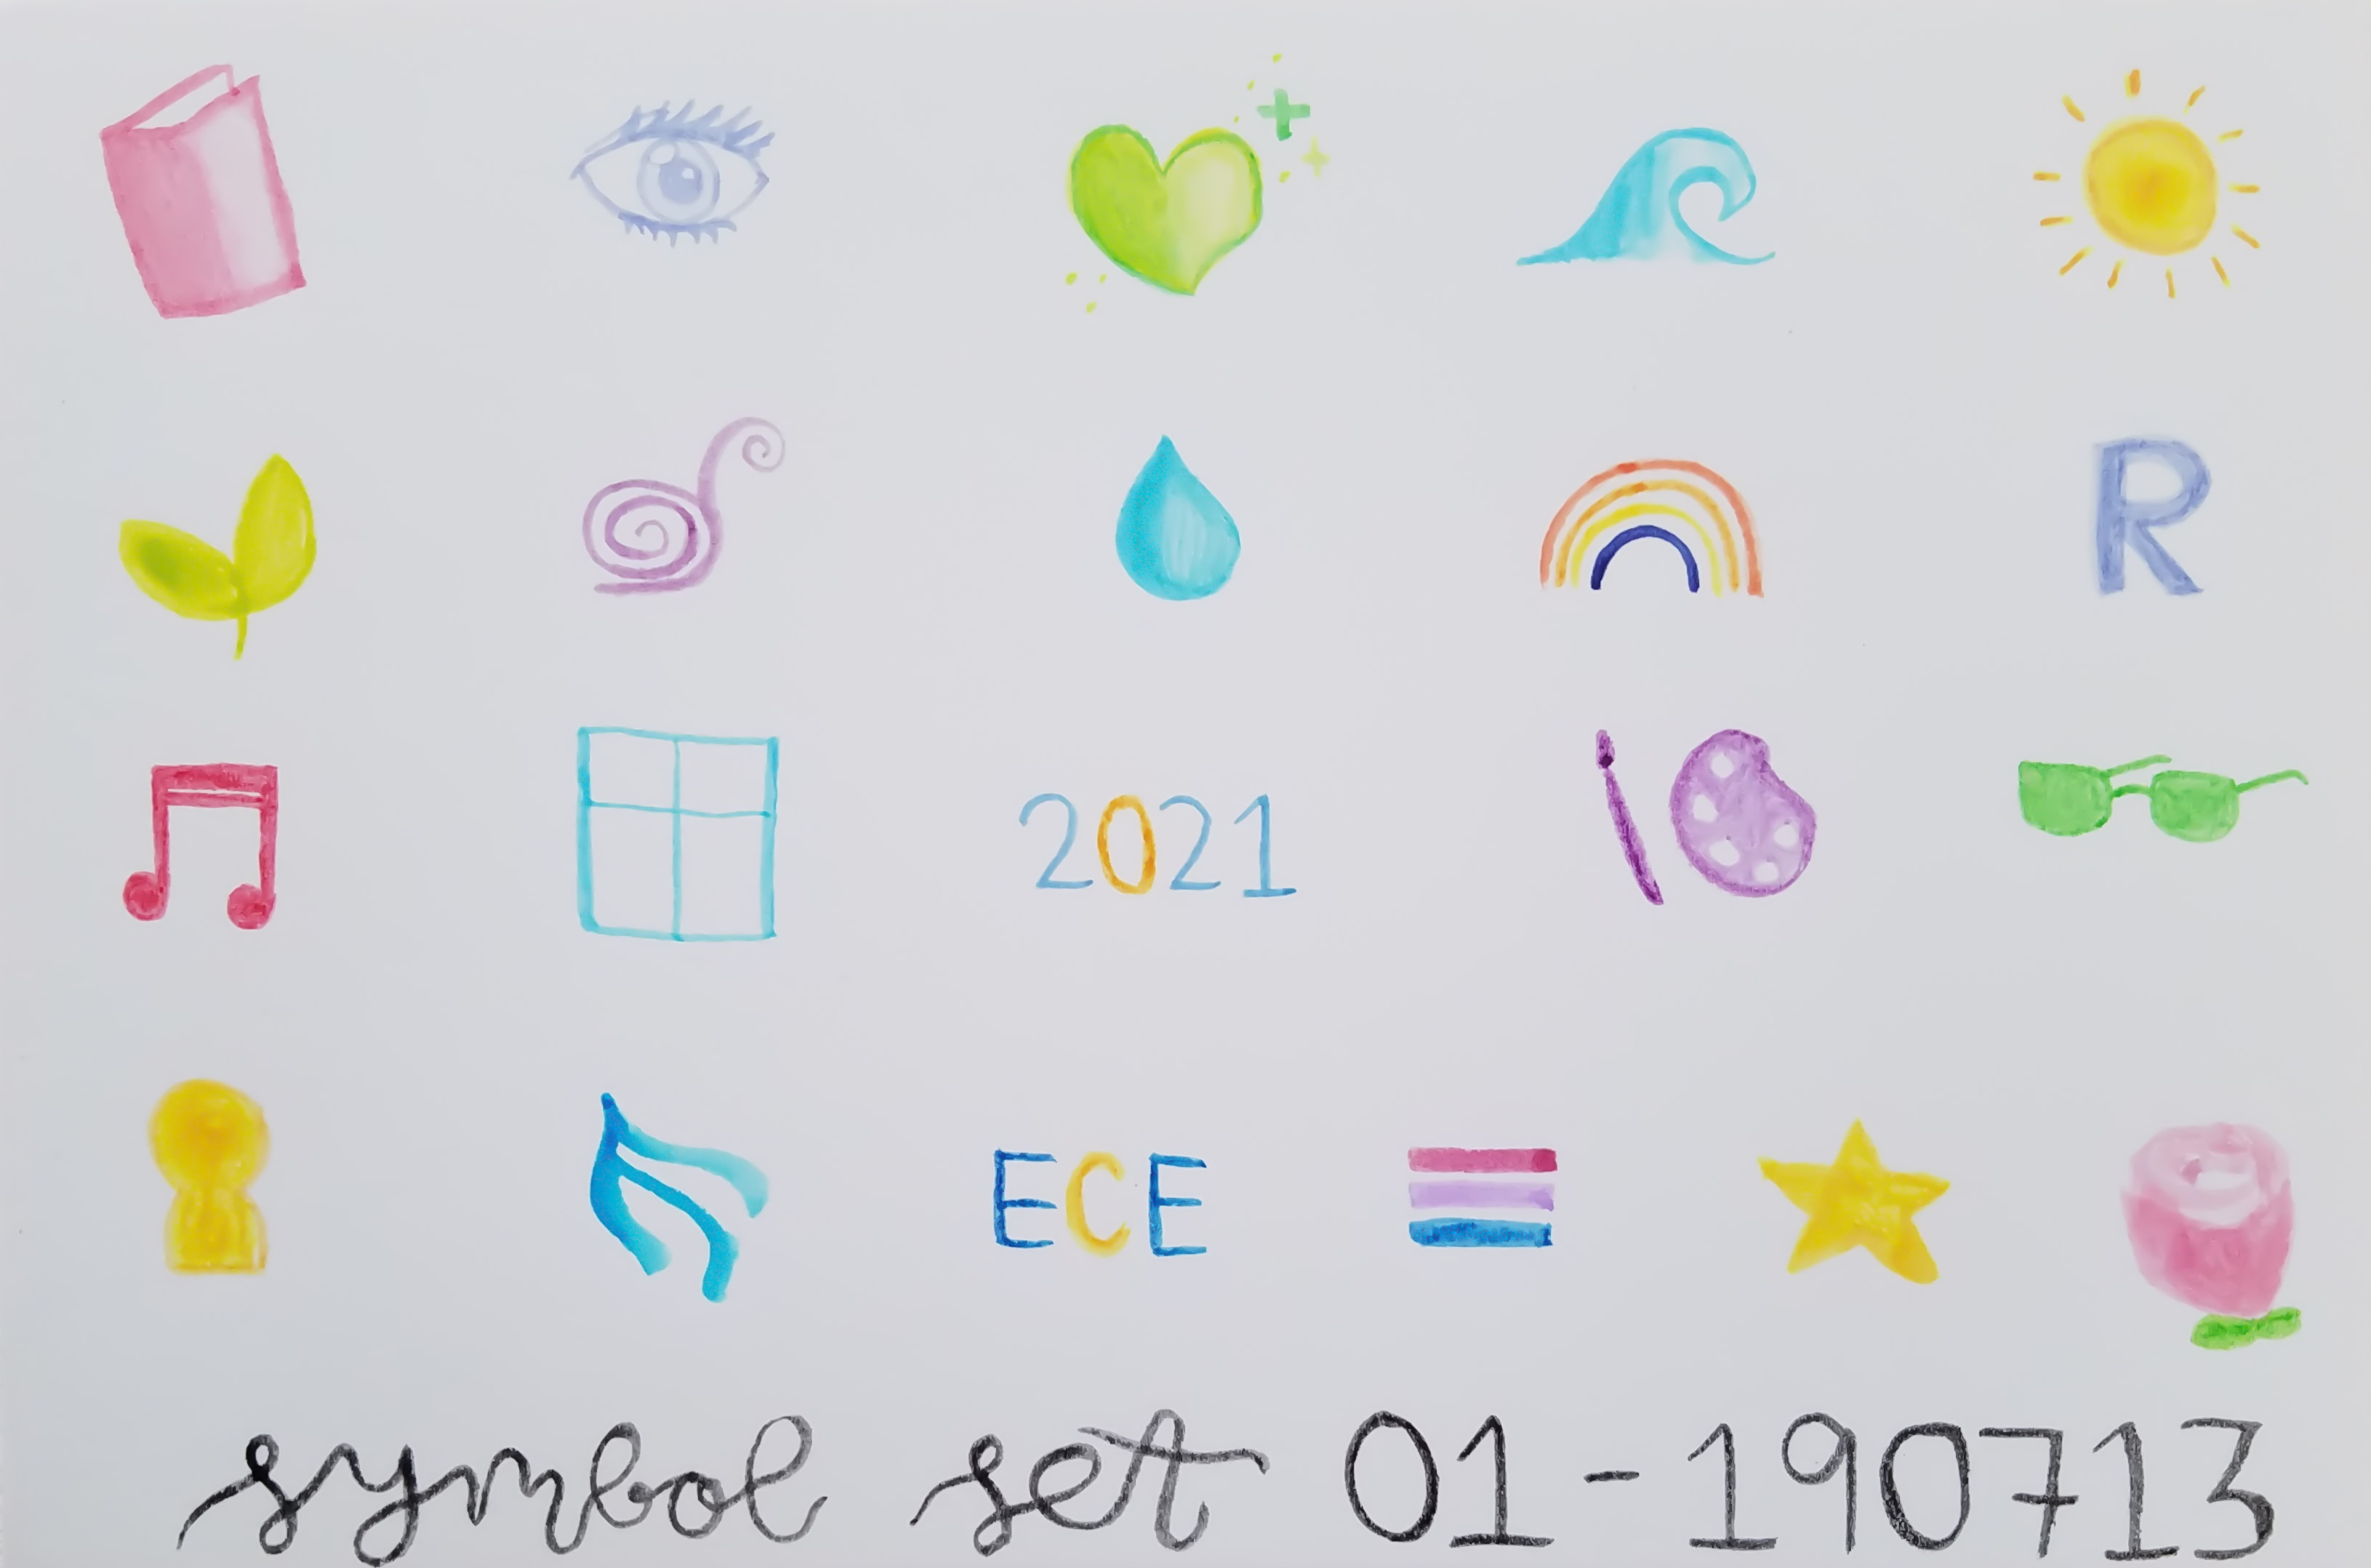 R
2021
ECE
symbol set 01-190713